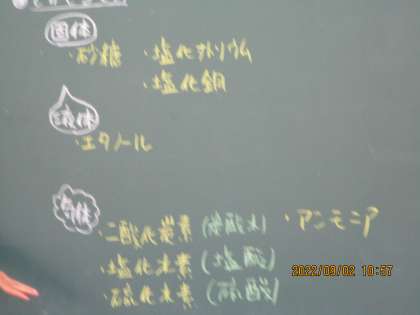 固体
・砂糖 ・塩化ナトリウム
・塩化銅
液体
・エタノール
気体
・二酸化炭素(炭酸水) ・アンモニア
・塩化水素(塩酸)
・硫化水素(硫酸)
2022/09/02 10:57